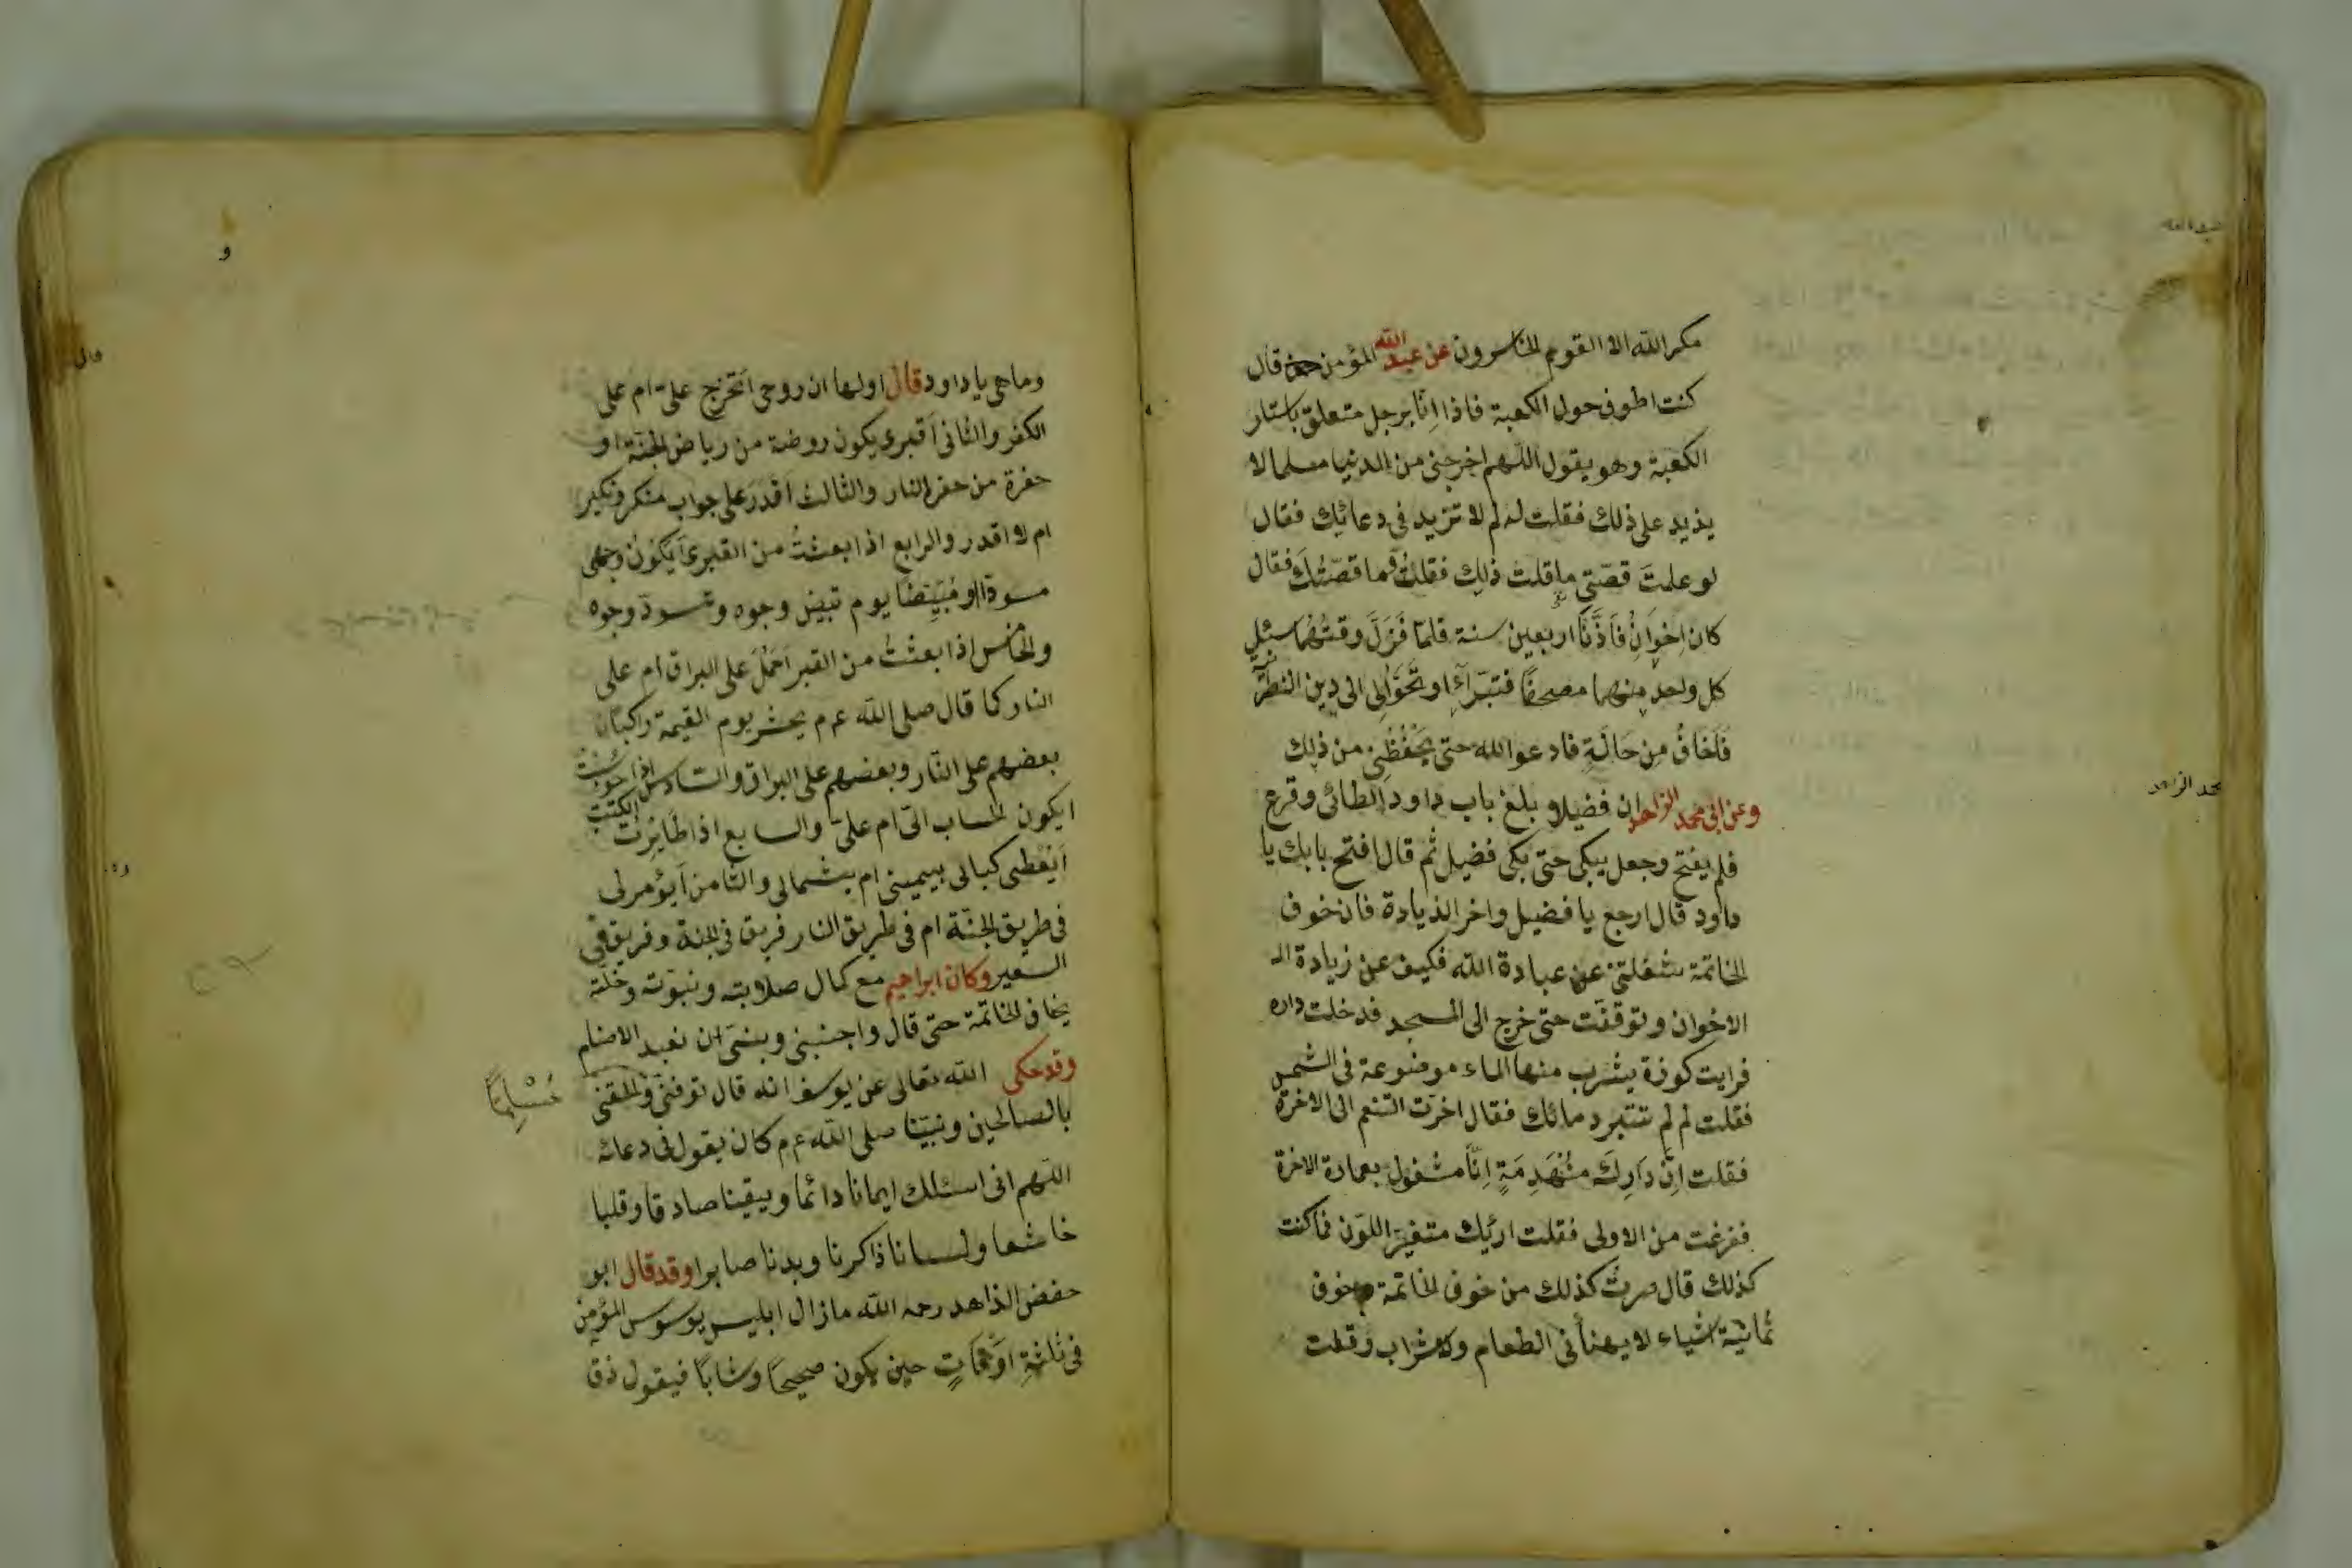 مكر الله الا القوم الخاسرون عن عبد الله المؤمن قال
كنت اطوف حول الكعبة فاذا انا برجل متعلق باستار
الكعبة وهو يقول اللهم اخرجني من الدنيا مسلما لا
يذيد على ذلك فقلت له لم لا تزيد في دعائك فقال
لو علمتَ قصّتي ما قلت ذلك فقلتُ فما قصّتُك فقال
كان اِخوَانِ فَاَذَّنَا اربعين سنة فلمّا قَرَلَ وقتهُما سئل
كل واحد منهما مصحفًا فتبرّآء او تحَوَّلِ الى دين النصْرَنيّة
فَاَخَافُ مِن حَالَةٍ فادعوا الله حتى يَحْفُظَنِي من ذلك
وعن ابي محمد الزاهد ان فضيلا بلغ باب داود الطائى وقرع
فلم يفتح وجعل يبكى حتى بكى فضيل ثم قال افتح بابك يا
داود قال ارجع يا فضيل واخر الذيادة فان خوف
الخاتمة شغلتني عن عبادة الله فكيف عن زيادة الـ
الاخوان وتوقفت حتى خرج الى المسجد فدخلت داره
فرايت كوزة يشرب منها الماء موضوعة في الشمس
فقلت لِم لم تتبرد مائك فقال اخرّت التنعم الى الاخرة
فقلت اِنّ دَارِكَ مُنْهَدِمَةٍ اِنّا مشغول بعمادة الاخرة
ففرغت من الاولى فقلت اريك متغيّر اللون فما كنت
كذلك قال صرتُ كذلك من خوف الخاتمة وخوف
ثمانية اشياء لا يهنأني الطعام ولا شراب وقلت
عبد الله
محمد الزاهد
وما هي يا داود قال اولها ان روحى اَتخرج على ام على
الكفر والثانى اَقبرى يكون روضة من رياض الجنّة او
حفرة من حفر النار والثالث اَقدَر على جواب منكر ونكير
ام لا اقدر والرابع اذا بعثتُ من القبرى اَيكونُ وجهى
مسودّا او مُبَيّضًا يوم تبيض وجوه وتسودّ وجوه
والخامس اذا بعثتُ من القبر اَحْمَلُ على البراق ام على
النار كما قال صلى الله عم يحشر يوم القيمة راكبانا
بعضهم على النّار وبعضهم على البراق والسادس اذا حوسبت
ايكون الحساب الىّ ام علىّ والسابع اذا طَايَرت الكتب
اَيُعْطى كبالى بيمينى ام بشمالى والثامن اَيؤمرلى
فى طريق الجنّة ام فى طريق النار فريق فى الجنة وفريق فى
السعير وكان ابراهيم مع كمال صلابته ونبوّته وخلّته
يخاف الخاتمة حتى قال واجنبنى وبنىَّ ان نعبد الاصنام
وقد حكى الله تعالى عن يوسف انه قال توفنى والحقنى
مُسْلِمًا
بالصالحين ونبيّنا صلى الله عم كان يقول فى دعائه
اللهم انى اسئلك ايمانا دائما ويقينا صادقا وقلبا
خاشعا ولسانا ذاكرنا وبدنا صابرا وقد قال ابو
حفض الذاهد رحمه الله مازال ابليس يوسوس المؤمِن
فى ثَلثةِ اوْقَاتٍ حين يكون صحيحًا وشابًا فيقول ذق
و
قال